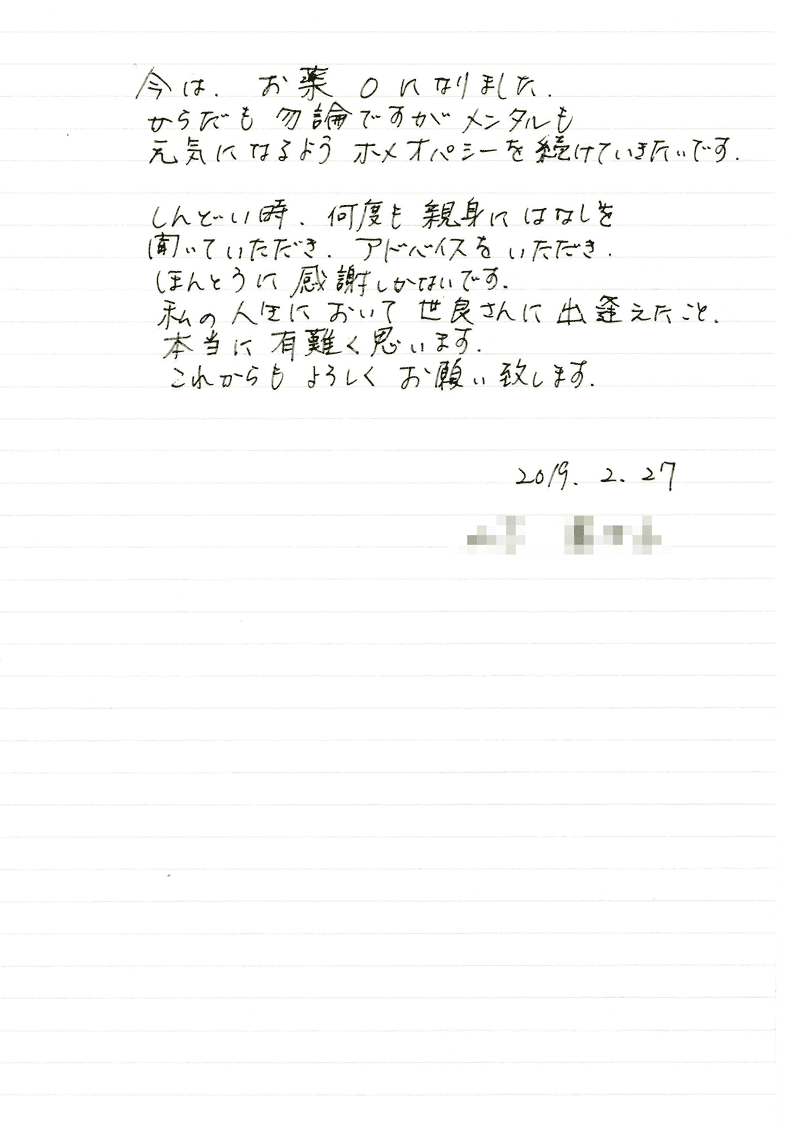 今は、お薬0になりました。
からだも勿論ですがメンタルも
元気になるようホメオパシーを続けていきたいです。
しんどい時、何度も親身にはなしを
聞いていただき、アドバイスをいただき、
ほんとうに感謝しかないです。
私の人生において世良さんに出逢えたこと、
本当に有難く思います。
これからもよろしくお願い致します。
2019.2.27